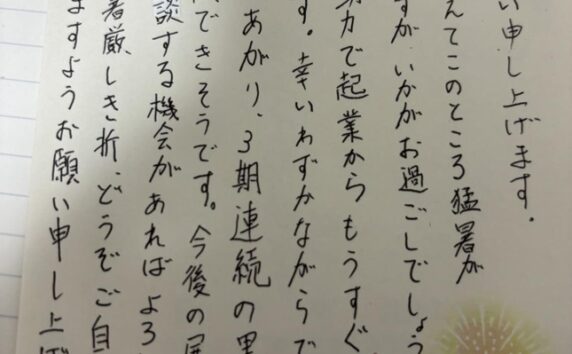 い申し上げます。
えてこのところ猛暑が
すが、いかがお過ごしでしょう
力で起業からもうすぐ
す。幸いわずかながらで
あがり、3期連続の黒
できそうです。今後の展
談する機会があればよろ
暑厳しき折、どうぞご自
ますようお願い申し上げ